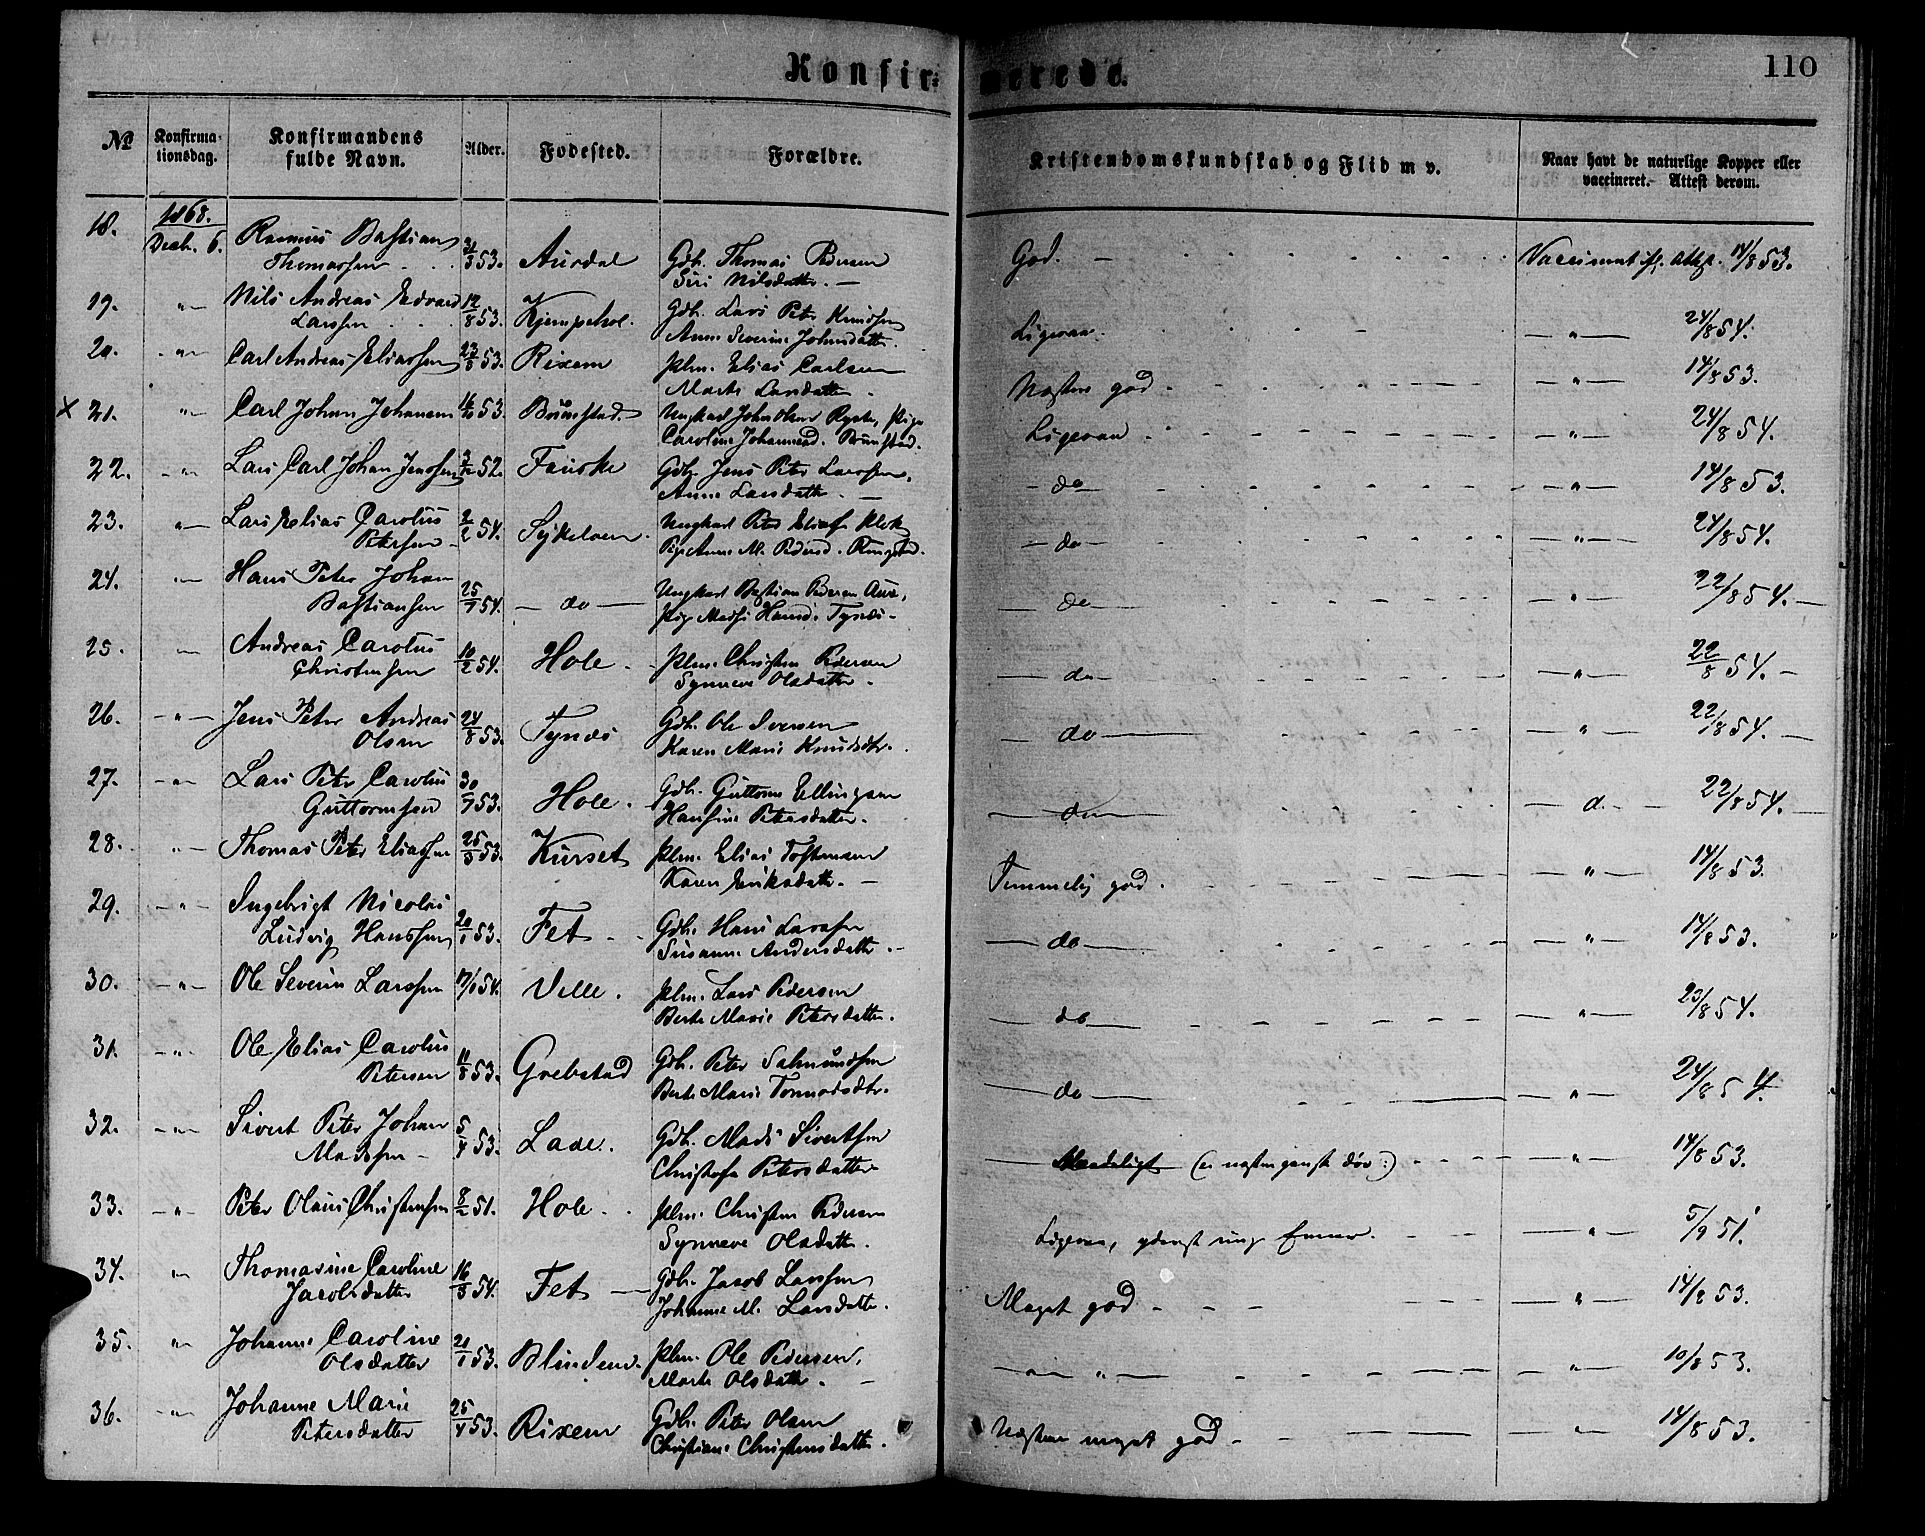 Konfirmerede.
110
№
Konfirmationsdag.
Konfirmandens fulde Navn.
Alder.
Fødested.
Forældre.
Kristendomskundskab og Flid m v.
Naar havt de naturlige Kopper eller vaccineret. Attest derom.
18. 1868. Decbr. 6. Rasmus Bastian Thomassen 53. Aurdal Gdb. Thomas Pedersen
Siri Nilsdatter. God. Vaccineret if. Attest. 14/8 53.
19. " Nils Andreas Edvard Larssen 12/8 53. Kjempehol. Gdb. Lars Peter Knudsen
Anne Severine Johnsdatter. Ligesaa. " 24/8 54.
20. " Carl Andreas Eliassen 23/8 53. Rixem plm. Elias Carlsen
Marte Larsdatter. Næsten god. " 14/8 53.
x 21. " Carl Johan Johansen 53. Brunstad. Ungkarl John Olsen Pige
Caroline Johannesd. Brunstad. Ligesaa " 24/8 54.
22. " Lars Carl Johan Jenssen 52. Fauske Gdb. Jens Peter Larssen.
Anne Larsdatter. do " 14/8 53.
23. " Lars Elias Carolus Petersen 2/2 54. Sykeloen. Ungkarl Peter
Pige Anne M. Pedersd. Ringstad. do " 24/8 54.
24. " Hans Peter Johan Bastiansen 25/1 54. do Ungkarl Bastian Pedersen Aure,
Pige Hansd. Tynæs do " 22/8 54.
25. " Andreas Carolus Christensen 10/2 54. Hole plm. Christen Pedersen
Synneve Olsdatter. do " 22/8 54.
26. " Jens Peter Andreas Olsen 24/8 53. Tynæs Gdb. Ole Iversen
Karen Marie Knudsdtr. do " 22/8 54.
27. " Lars Peter Carolus Guttormsen 30/7 53. Hole. Gdb. Guttorm Ellingsen
Hansine Petersdatter. do d. 22/8 54.
28. " Thomas Peter Eliassen 53. Kurset plm. Elias Tostensen
Karen Eriksdatter. Temmelig god. " 14/8 53.
29. " Ingebrigt Nicolai Ludvig Hanssen 20/1 53. Fet Gdb. Hans Larssen
Susanne Andersdatter. do " 14/8 53.
30. " Ole Severin Larssen 54. Velle. plm. Lars Pedersen
Berte Marie Petersdatter. do " 23/8 54.
31. " Ole Elias Carolus Petersen 11/8 53. Grebstad Gdb. Peter Salmundsen
Berte Marie Tormodsdtr. do " 24/8 54.
32. " Sivert Peter Johan Madssen 5/4 53. Lade. Gdb. Mads Sivertsen
Christofa Petersdatter. Maadeligt (er næsten ganske døv:) " 14/8 53.
33. " Peter Olaus Christensen 8/2 51. Hole. plm. Christen Pedersen
Synneve Olsdatter. Ligesaa, yderst ringe Evner. " 5/9 51.
34. " Thomasine Caroline Jacobsdatter 16/3 54. Fet Gdb. Jacob Larssen
Johanne M. Larsdatter. Meget god " 14/8 53.
35. " Johanne Caroline Olsdatter 21/1 53. Blindem. plm. Ole Pedersen,
Marte Olsdatter. " " 10/8 53.
36. " Johanne Marie Petersdatter 25/4 53. Rixem Gdb. Peter Olsen
Christiane Christensdatter. Næsten meget god " 14/8 53.